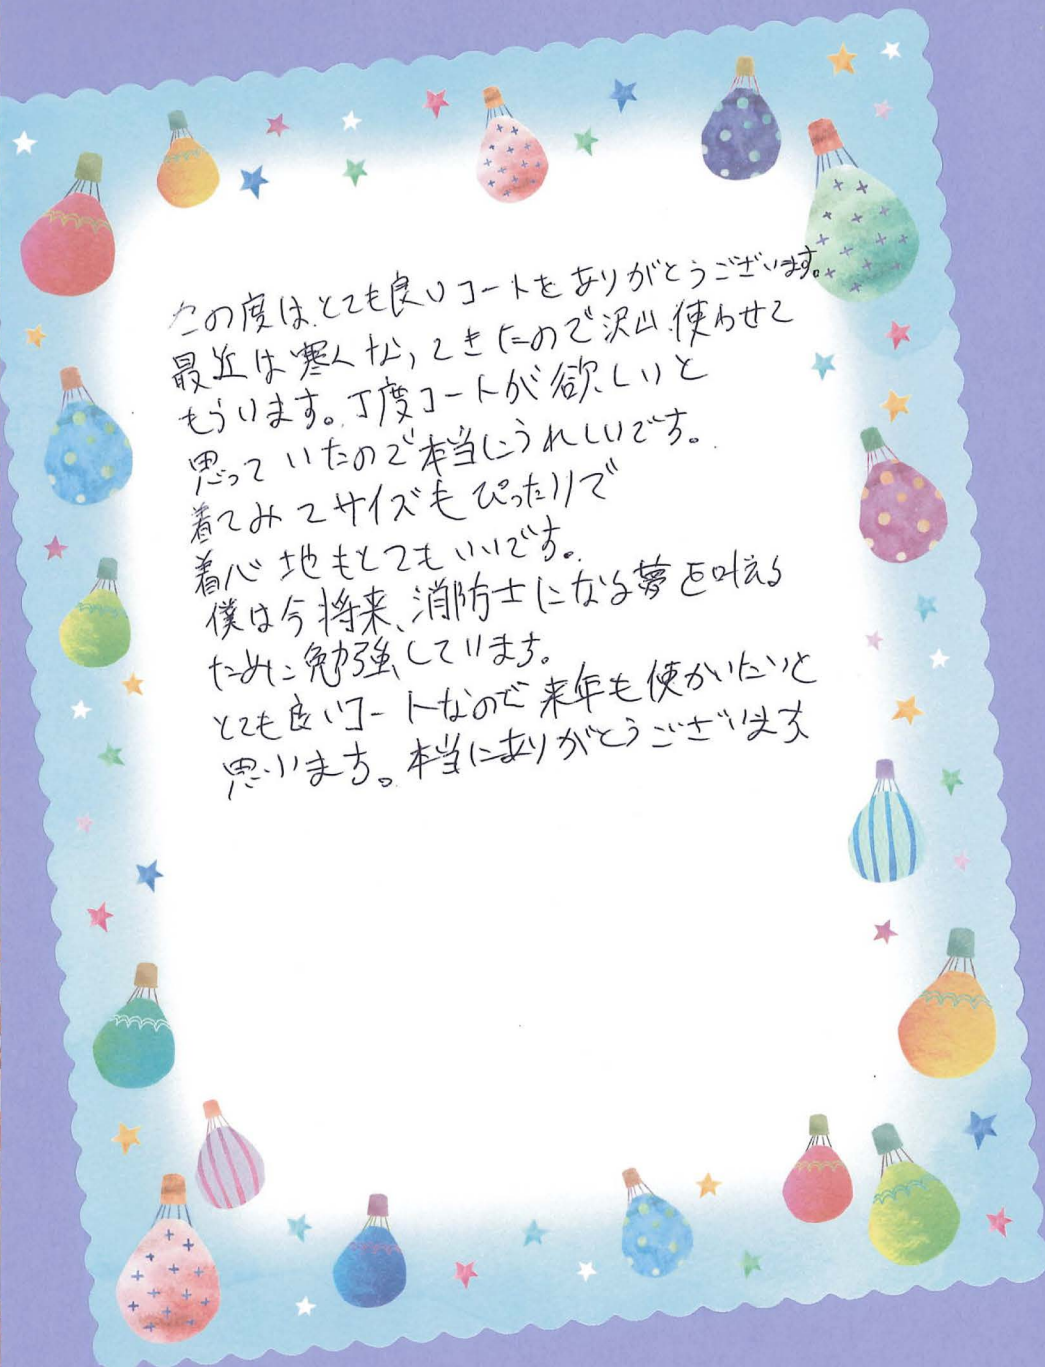 この度は、とても良いコートをありがとうございます。
最近は寒くなってきたので沢山使わせて
もらいます。丁度コートが欲しいと
思っていたので本当にうれしいです。
着てみてサイズもぴったりで
着心地もとてもいいです。
僕は今将来、消防士になる夢を叶える
ために勉強しています。
とても良いコートなので来年も使かいたいと
思います。本当にありがとうございます